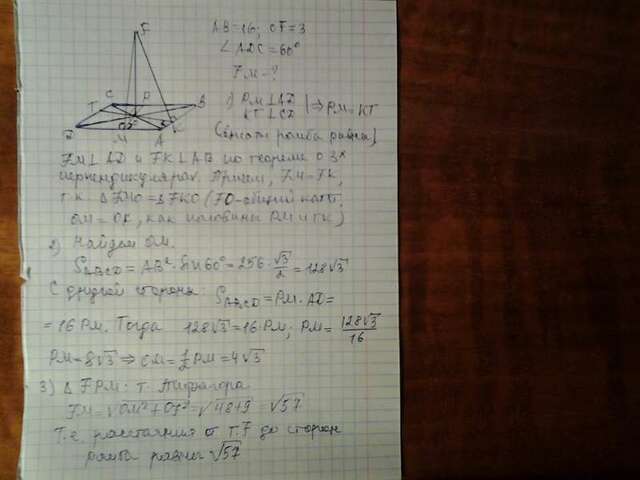 F
C P B
T K
D M A
AB=16; OF=3
∠ADC=60°
FM-?
1) PM⊥AD
KT⊥CD |⇒PM=KT
(высоты ромба равны)
FM⊥AD и FK⊥AB по теореме о 3х
перпендикулярах. Причем, FM=FK,
т.к. ΔFMO=ΔFKO (FO-общий катет,
OM=OK, как половины PM и TK)
2) Найдем OM.
S ABCD = AB²·sin60°=256·√3/2=128√3
С другой стороны: S ABCD=PM·AD=
=16PM. Тогда 128√3=16PM; PM=128√3/16
PM=8√3⇒OM=1/2PM=4√3
3) ΔFPM: т. Пифагора
FM=√OM²+OF²=√48+9=√57
Т.е. расстояния от т.F до сторон
ромба равны √57